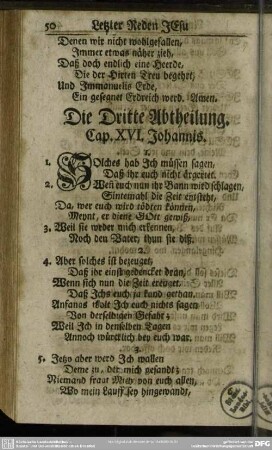 50 Letzter Reden JEsu
Denen wir nicht wohlgefallen,
Immer etwas näher zieh,
Daß doch endlich eine Heerde,
Die der Hirten Treu begehrt,
Und Immanuelis Erde,
Ein gesegnet Erdreich werd. Amen.
Die Dritte Abtheilung.
Cap. XVI. Johannis.
1.
1. Solches hab Ich müssen sagen,
Daß ihr euch nicht ärgertet.
2. Weil euch nun ihr Bann wird schlagen,
Sintemahl die Zeit entsteht,
Da, wer euch wird tödten können,
Meynt, er diene GOtt gewiß,
3. Weil sie weder mich erkennen,
Noch den Vater, thun sie diß.
2.
4. Aber solches ist bezeuget,
Daß ihr einst gedencket dran,
Wenn sich nun die Zeit ereuget,
Daß Ichs euch ja kund gethan.
Anfangs wolt Ich euch nichts sagen
Von derselbigen Gefahr;
Weil Ich in denselben Tagen
Annoch würcklich bey euch war.
3.
5. Jetzo aber werd Ich wallen
Deme zu, der mich gesandt;
Niemand fragt Mich von euch allen,
Wo mein Lauff sey hingewandt,